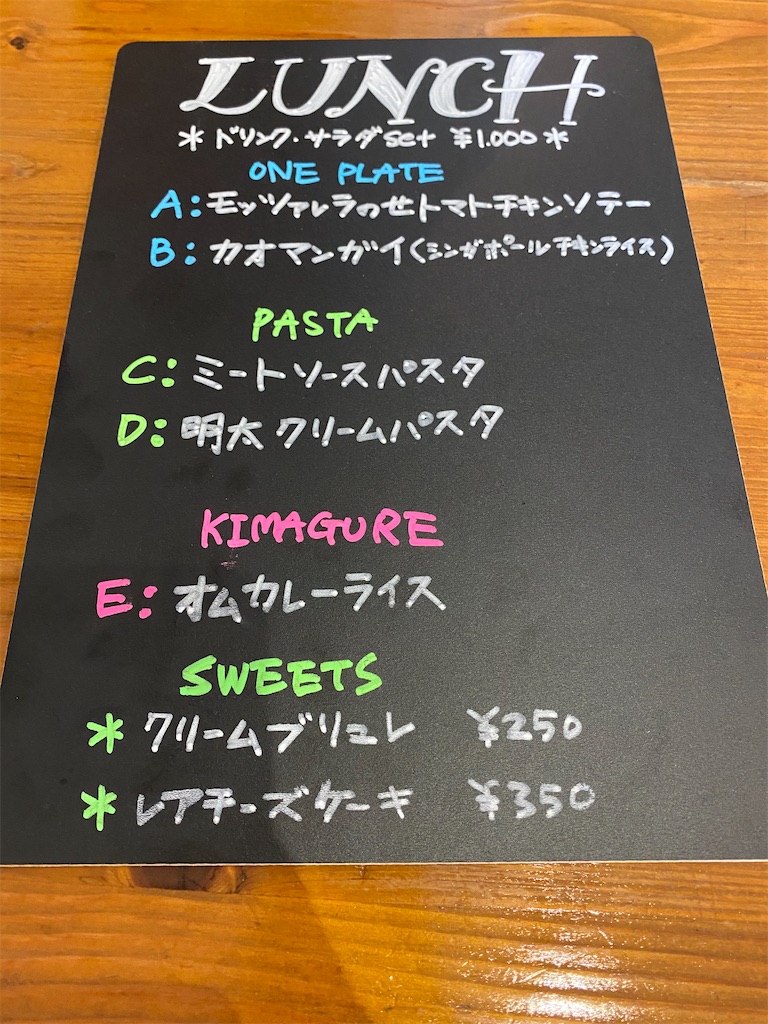 LUNCH
*ドリンク・サラダset ¥1.000*
ONE PLATE
A:モッツァレラのせトマトチキンソテー
B:カオマンガイ(シンガポールチキンライス)
PASTA
C:ミートソースパスタ
D:明太クリームパスタ
KIMAGURE
E:オムカレーライス
SWEETS
*クリームブリュレ ¥250
*レアチーズケーキ ¥350